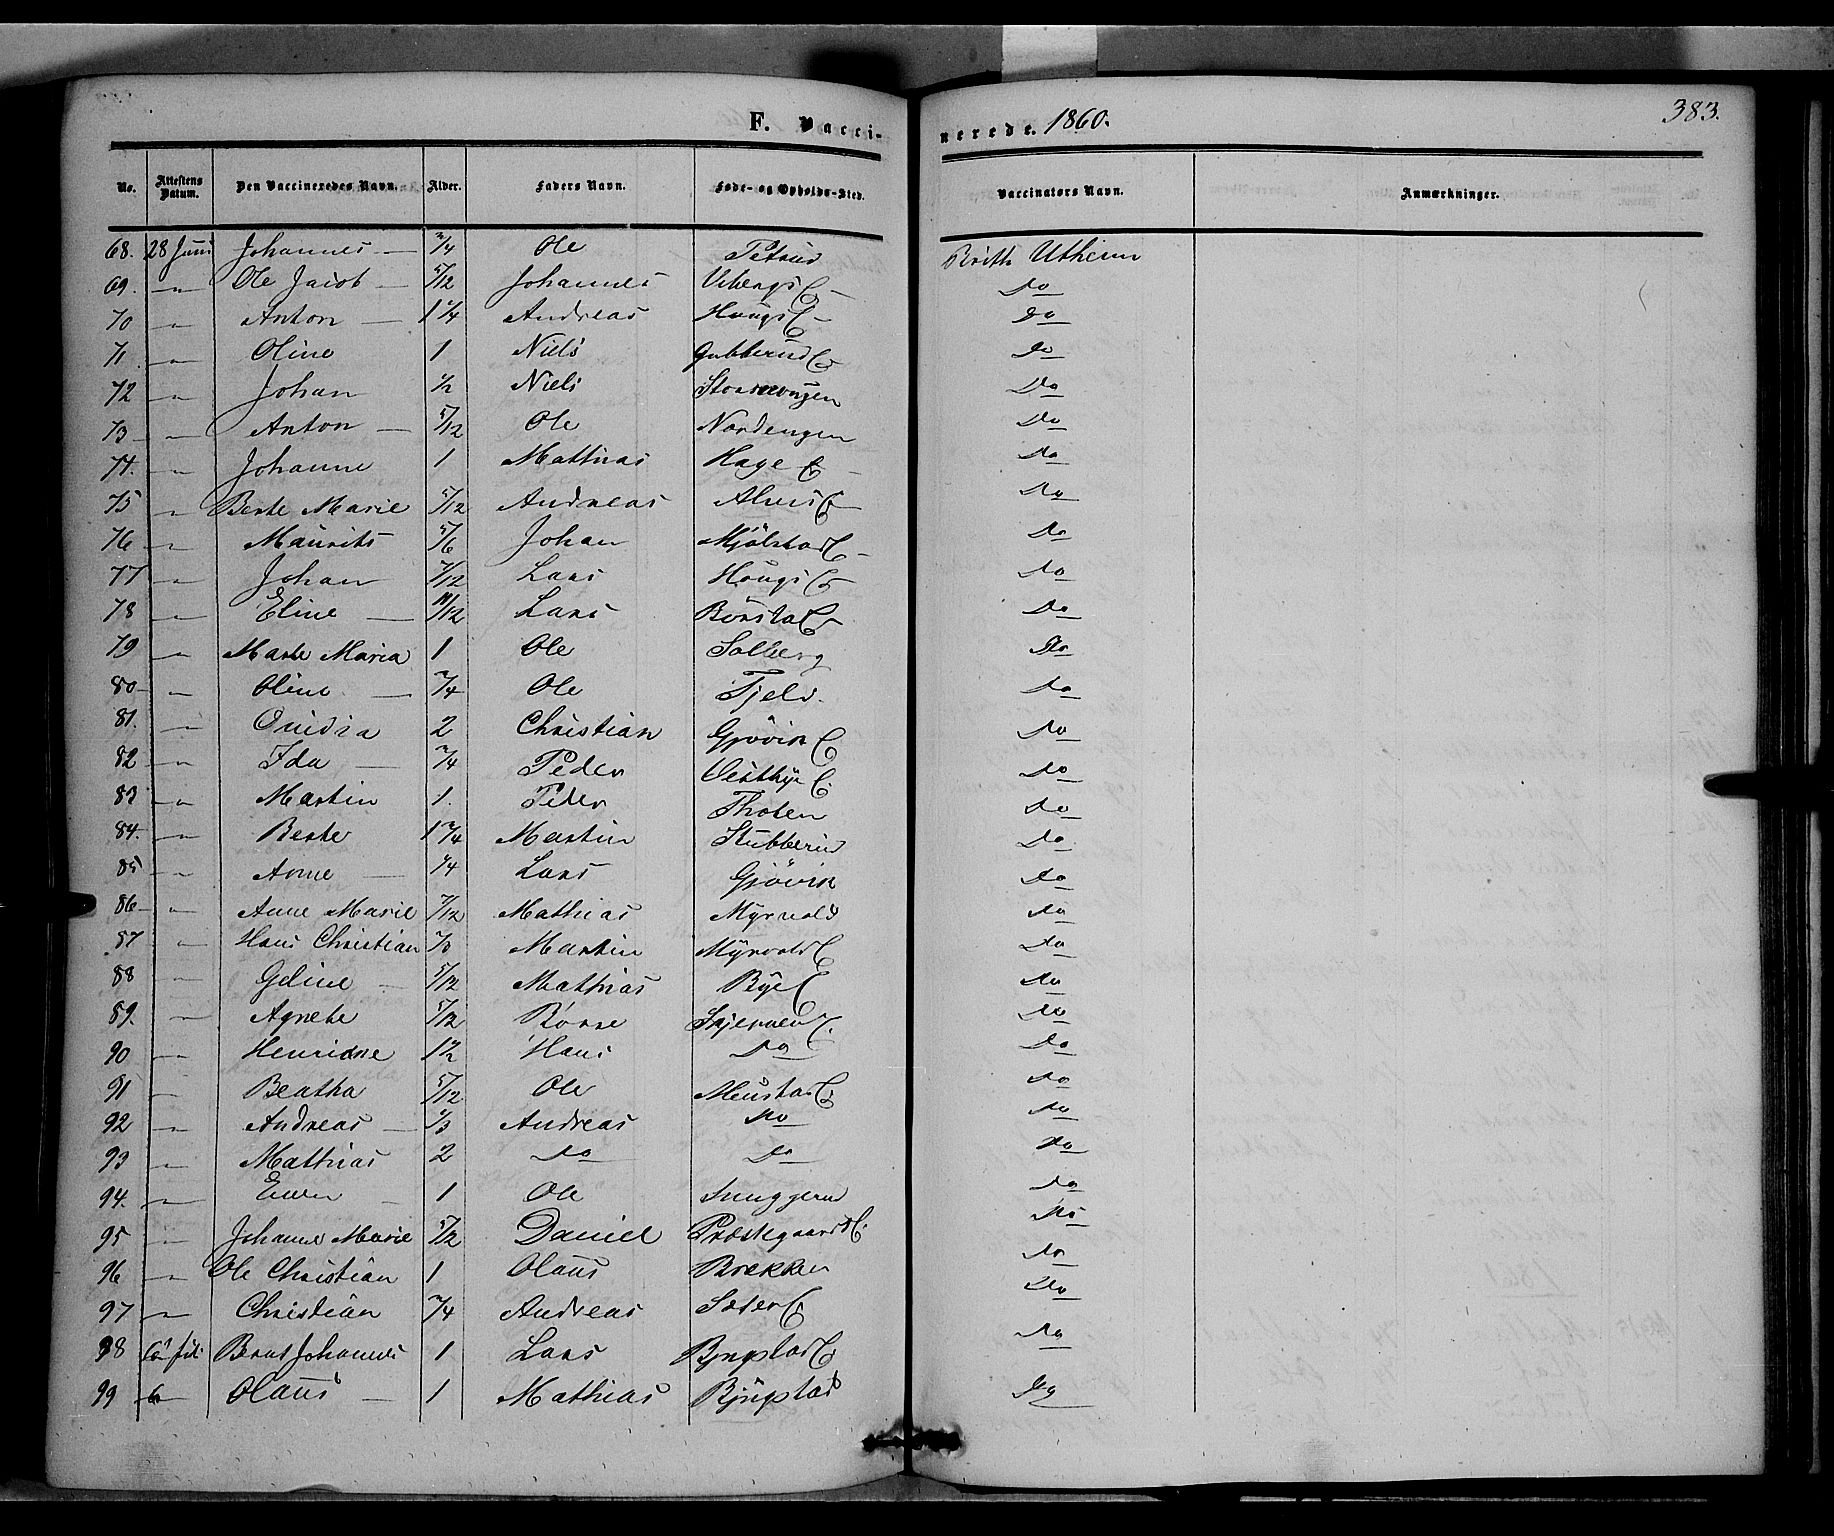 383.
F. Vaccinerede. 1860.
No. Attestens Datum. Den Vaccineredes Navn. Alder. Faders Navn. Føde- og Opholds-Sted. Vaccinators Navn. Anmærkninger.
68. 28 Juni Johannes 3/4 Ole Brith Utheim
69. " Ole Jacob 5/12 Johannes Vibergs E Do
70 " Anton 1 1/4 Andreas Haugs E Do
71 " Oline 1 Niels Gubberud E Do
72 " Johan 1/2 Niels Do
73 " Anton 5/12 Ole Nordengen Do
74. " Johanne 1 Mathias Hage E Do
75 " Berte Marie 5/12 Andreas Do
76 " Maurits 5/6 Johan Mjølstad E Do
77 " Johan 7/12 Lars Haugs E Do
78 " Eline 11/12 Lars Do
79 " Marte Maria 1 Ole Solberg Do
80 " Oline 3/4 Ole Fjeld. Do
81. " 2 Christian Gjøvik E Do
82 " Ida 3/4 Peder Do
83 " Martin 1. Peder Thoten Do
84. " Berte 1 3/4 Martin Stubberud Do
85 " Anne 1/4 Lars Gjøvik Do
86 " Anne Marie 7/12 Mathias Myrvold Do
87 " Hans Christian Martin Myrvold E Do
88 " Geline 5/12 Mathias Bye E Do
89. " Agnete 5/12 Børre Skjerven E. Do
90 " Henrikke Hans Do Do
91 " Beatha 5/12 Ole Meustad E Do
92 " Andreas 1/3 Andreas Do Do
93 " Mathias 2 Do Do Do
94. " Even 1 Ole Snuggerud Do
95 " Johanne Marie 5/12 Daniel Præstegaards E. Do
96 " Ole Christian 1 Olaus Brækken Do
97 " Christian 3/4 Andreas Sæter E Do
98 Bernt Johannes 1 Lars Bjugstad E Do
99 Olaus 1 Mathias Bjugstad Do